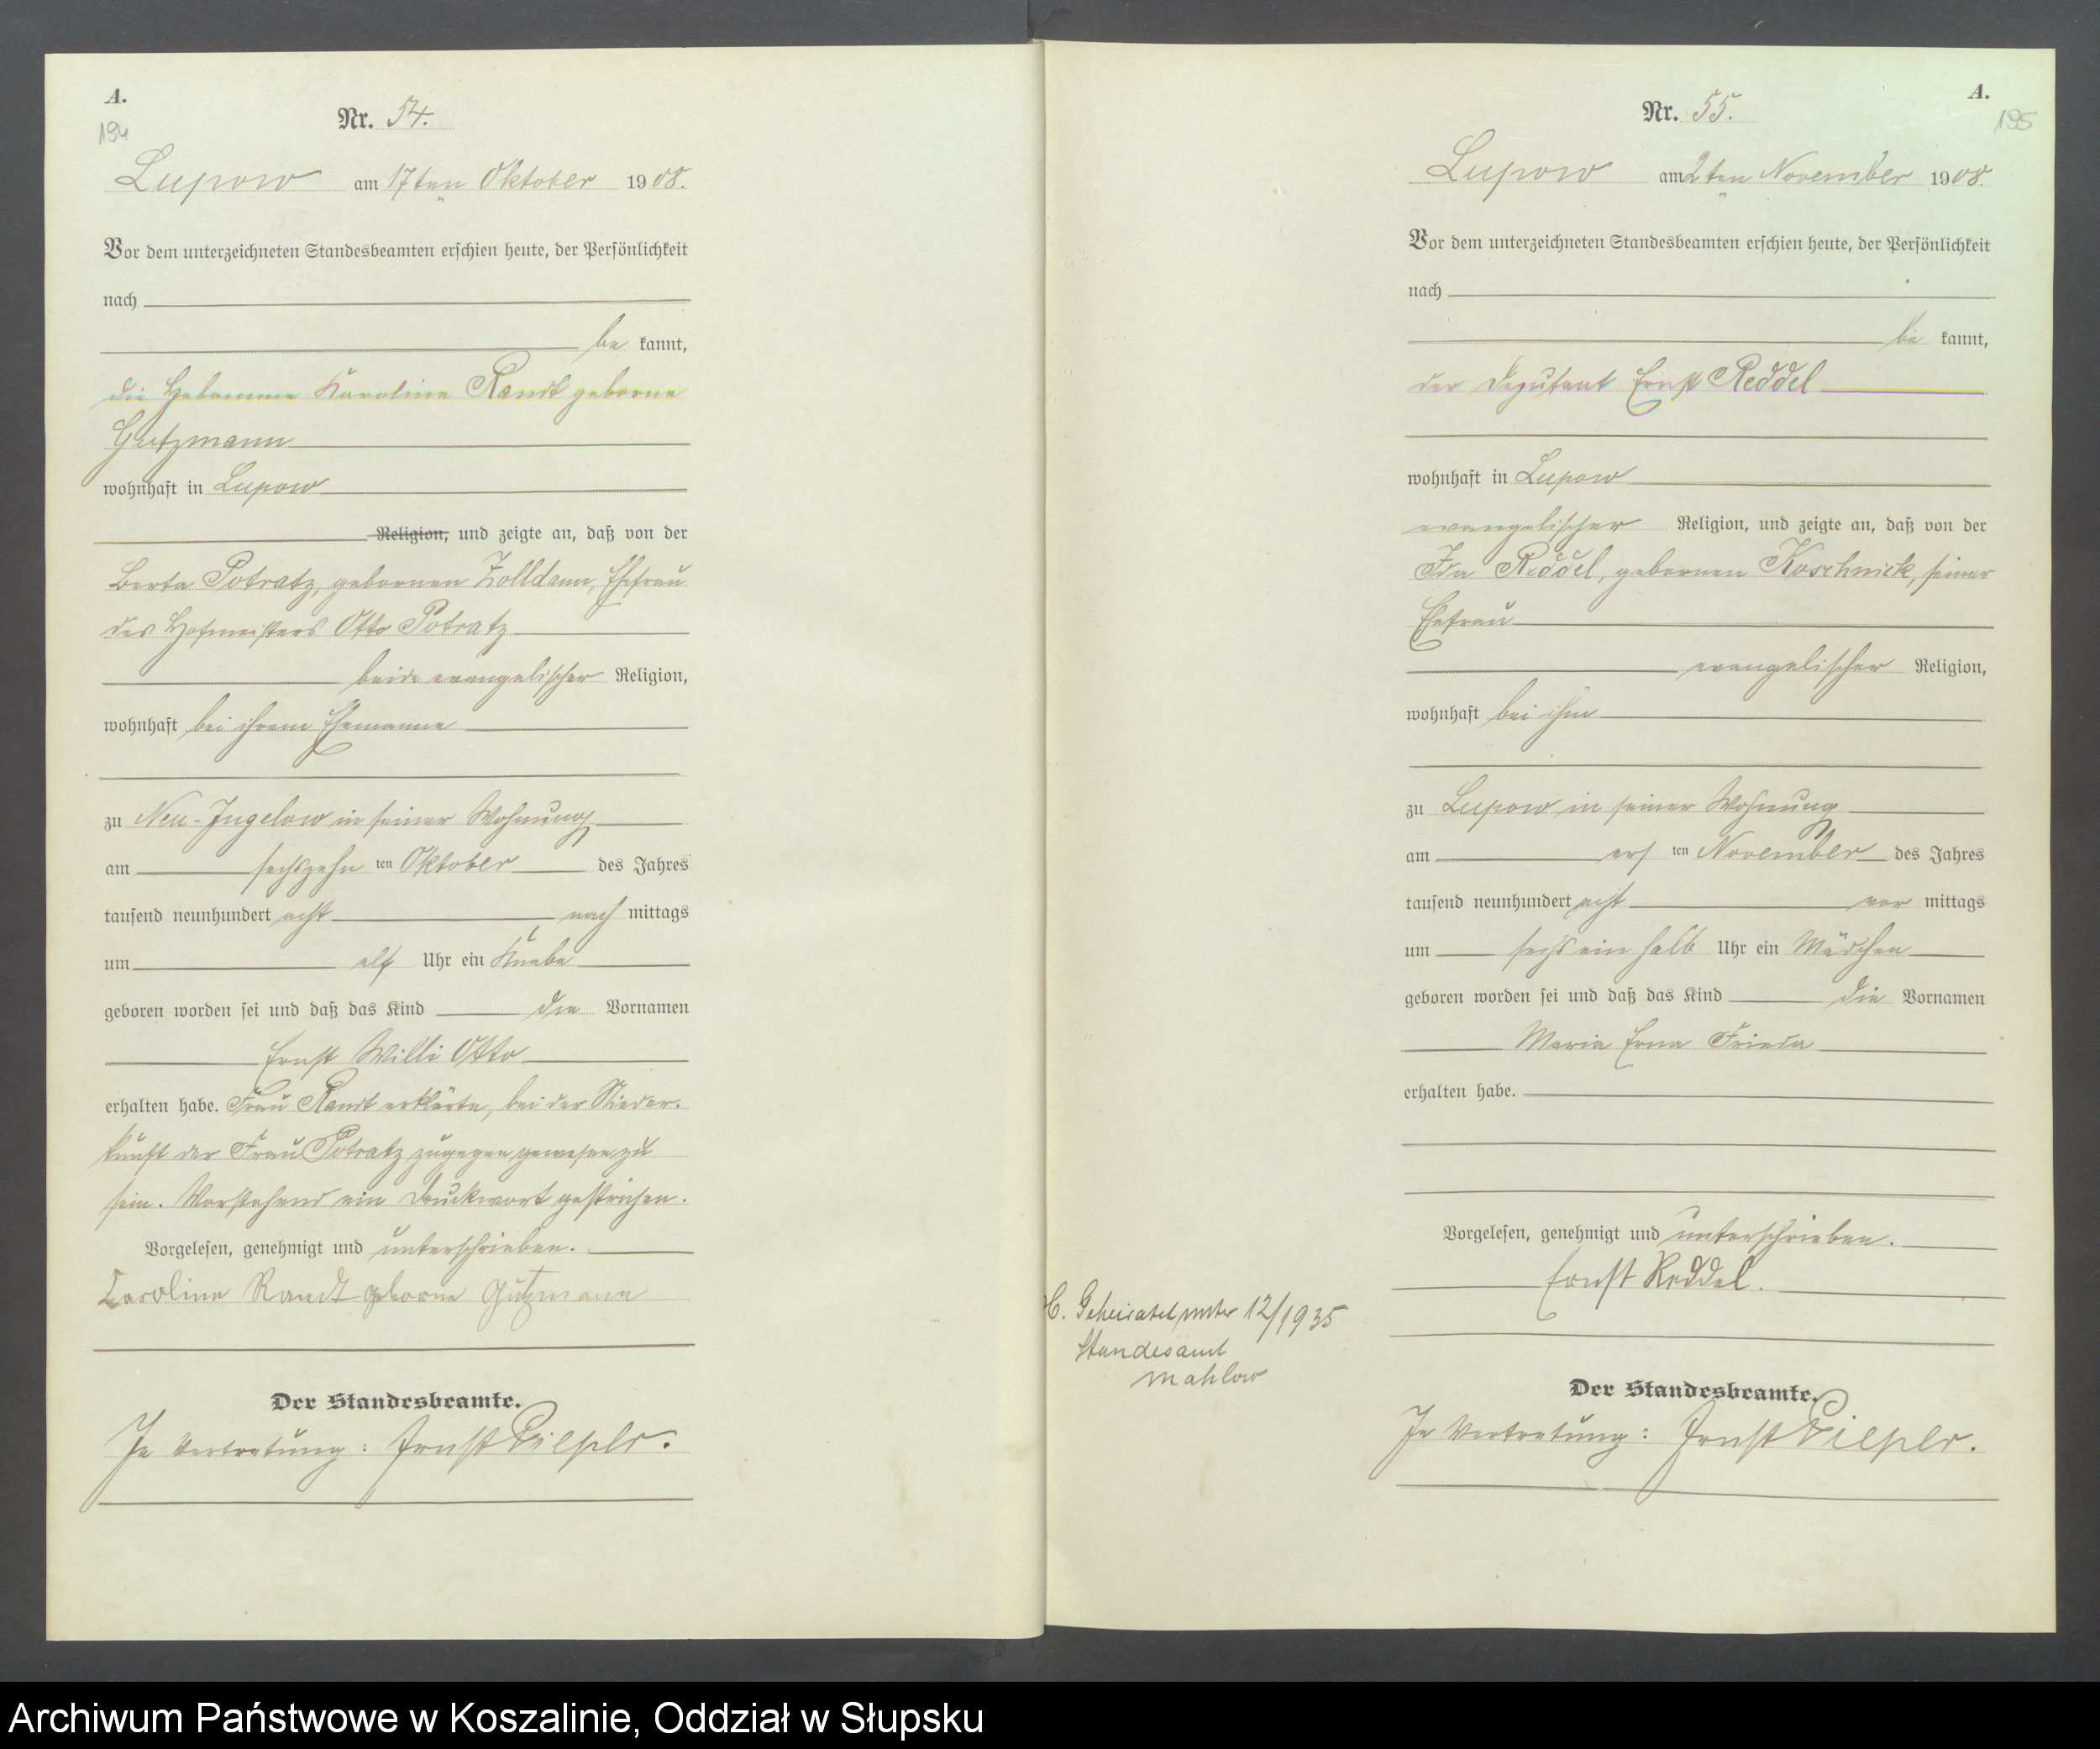 A.
194
Nr. 54.
Lupow am 17ten Oktober 1908.
Vor dem unterzeichneten Standesbeamten erschien heute, der Persönlichkeit
nach
be kannt,
die Hebamme Karoline Randt geborne
Gutzmann
wohnhaft in Lupow
Religion, und zeigte an, daß von der
Berta Potratz, gebornen Zolldann, Ehefrau
des Hofmeisters Otto Potratz
beide evangelischer Religion,
wohnhaft bei ihrem Ehemanne
zu Neu-Jugelow in seiner Wohnung
am sechszehn ten Oktober des Jahres
tausend neunhundert acht, nach mittags
um elf Uhr ein Knabe
geboren worden sei und daß das Kind die Vornamen
Ernst Willi Otto
erhalten habe. Frau Randt erklärte, bei der Nieder-
kunft der Frau Potratz zugegen gewesen zu
sein. Vorstehend ein Druckwort gestrichen.
Vorgelesen, genehmigt und unterschrieben.
Caroline Randt geborne Gutzmann
Der Standesbeamte.
In Vertretung: Ernst Pieper.
A.
195
Nr. 55.
Lupow am 2ten November 1908.
Vor dem unterzeichneten Standesbeamten erschien heute, der Persönlichkeit
nach
be kannt,
der Deputant Ernst Reddel
wohnhaft in Lupow
evangelischer Religion, und zeigte an, daß von der
Ida Reddel, gebornen Koschnick, seiner
Ehefrau
evangelischer Religion,
wohnhaft bei ihm
zu Lupow in seiner Wohnung
am ers ten November des Jahres
tausend neunhundert acht vor mittags
um sechs ein halb Uhr ein Mädchen
geboren worden sei und daß das Kind die Vornamen
Maria Erna Frieda
erhalten habe.
Vorgelesen, genehmigt und unterschrieben.
Ernst Reddel.
Geheiratet unter 12/1935
Standesamt
Mahlow
Der Standesbeamte.
In Vertretung: Ernst Pieper.
Archiwum Państwowe w Koszalinie, Oddział w Słupsku